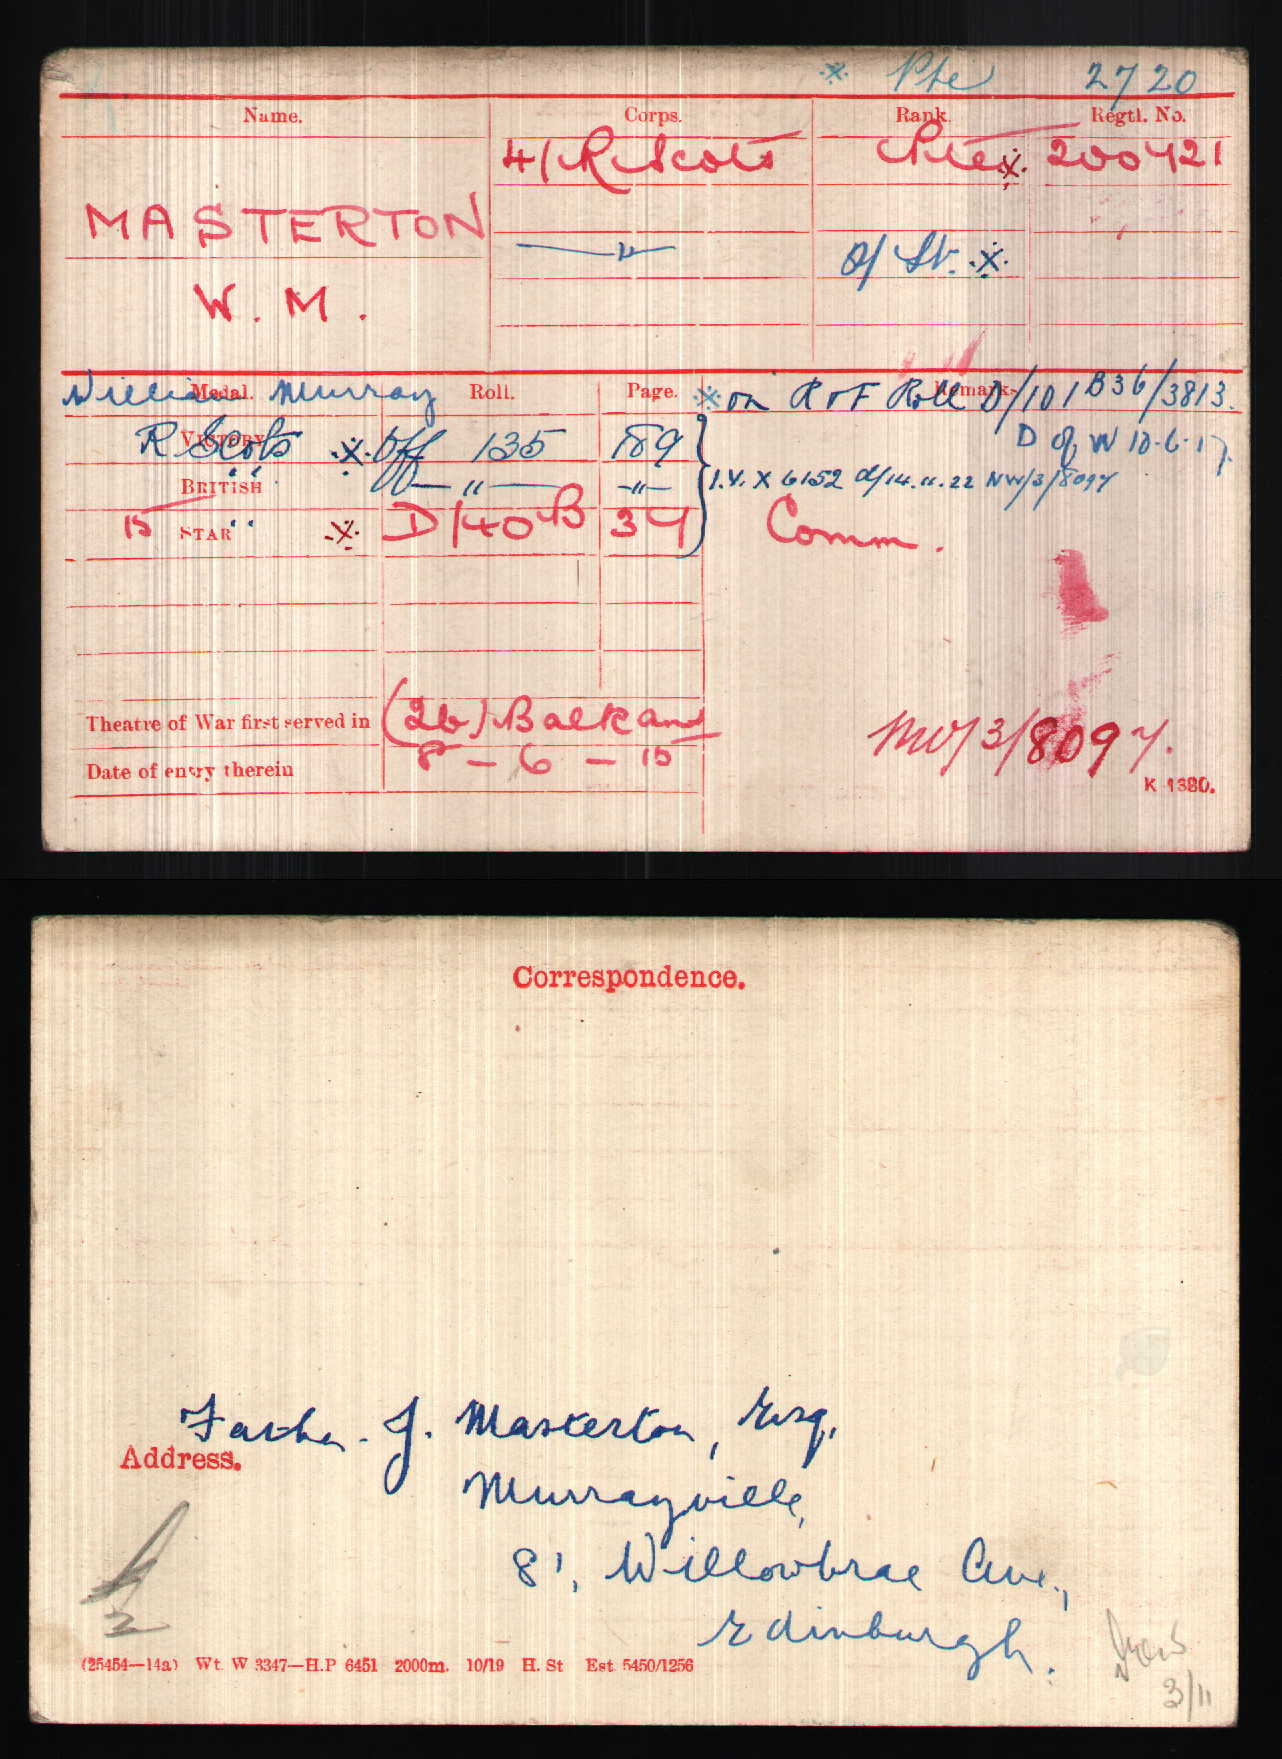 ※ Pte 2720
Name. Corps. Rank. Regtl. No.
4/R Scots Pte ※ 200421
MASTERTON
—〃— 2/Lt. ※
W. M.
William Murray
Medal. Roll. Page. Remarks
※ on R of F Roll D/101 B36/3813.
VICTORY R Scots ※ Off 135 189
D of W 10.6.17.
BRITISH 〃 —〃— —〃—
I.V. X 6152 d/14.11.22 NW/3/8097
15 STAR 〃 ※ D/40 B 34
Comm.
Theatre of War first served in (2b) Balkans
Date of entry therein 8 – 6 – 15
NW/3/8097.
K 1380.
Correspondence.
Father. J. Masterton, Esq.
Address.
Murrayville,
81, Willowbrae Ave.,
Edinburgh.
(25454—14a) Wt. W 3347—H.P 6451 2000m. 10/19 H. St Est. 5450/1256
3/11